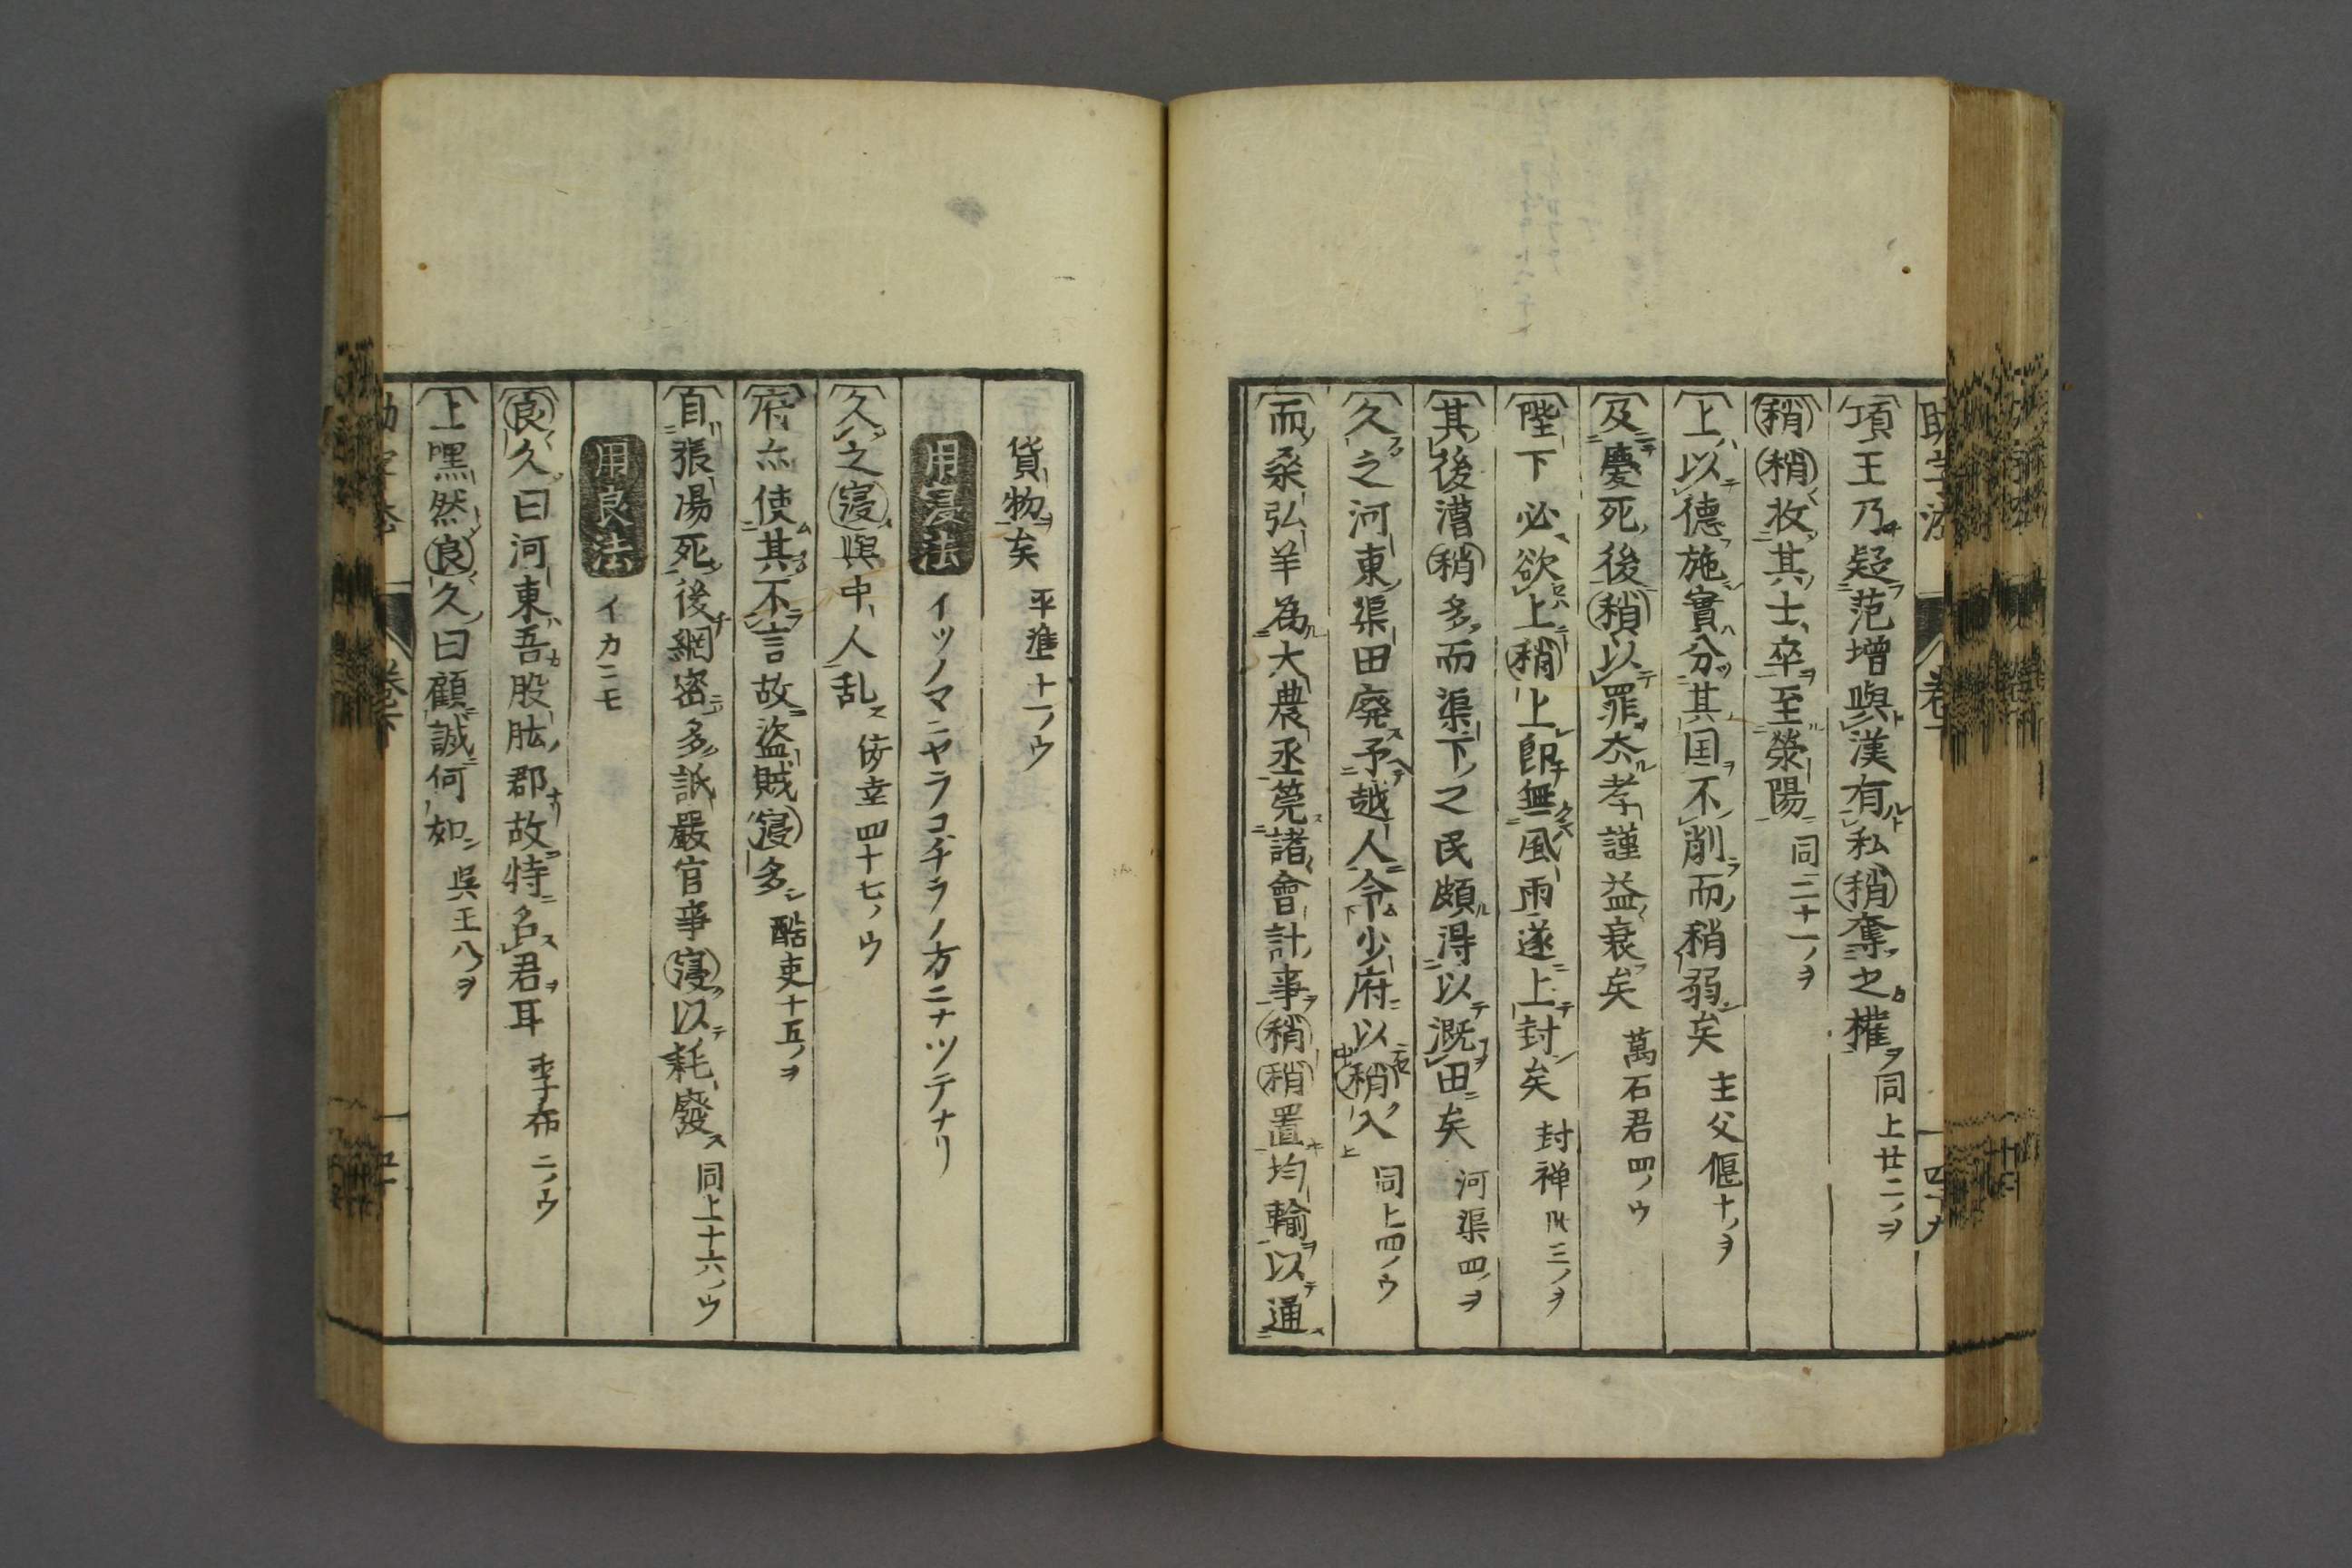 項王乃疑范增與漢有私稍奪之權 同上廿二ノヲ
稍稍收其士卒至滎陽 同二十一ノヲ
上以德施實分其国不削而稍弱矣 主父偃十ノヲ
及慶死後稍以罪去孝謹益衰矣 萬石君四ノウ
陛下必欲上稍上即無風雨遂上封矣 封禅卅三ノヲ
其後漕稍多而渠下之民頗得以溉田矣 河渠四ノヲ
久之河東渠田廃予越人令少府以稍入 同上四ノウ
而桑弘羊為大農丞筦諸會計事稍稍置均輸以通
貨物矣 平準十一ノウ
用寖法 イツノマニヤラコチラノ方ニナツテナリ
久之寖與中人乱 佞幸四十七ノウ
府亦使其不言故盗賊寖多 酷吏十五ノヲ
自張湯死後網密多詆嚴官事寖以耗廢 同上十六ノウ
用良法 イカニモ
良久曰河東吾股肱郡故特名君耳 季布二ノウ
上嘿然良久曰顧誠何如 吳王八ノヲ